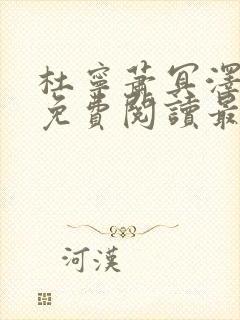 杜寧蕭宜澤
免費閱讀最
河漢